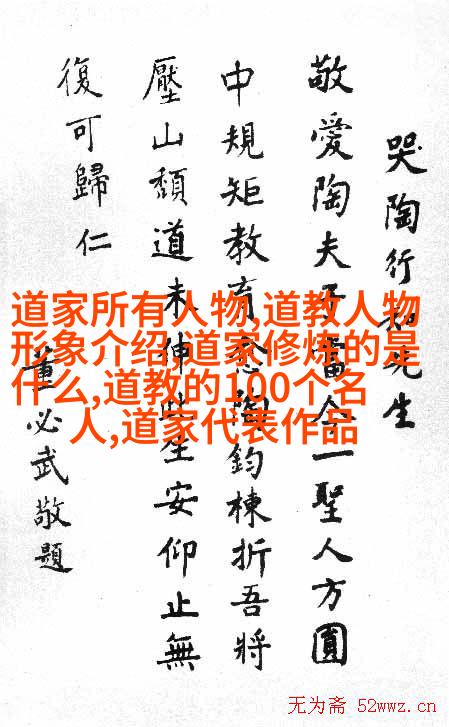 哭陶行知先生
敬愛陶夫子當今一聖人方圓
中規矩教育陶鈞棟折吾將
壓山頹道未伸此生安仰止無
復可歸仁
董必武敬題
道家所有人物,道教人物
形象介绍,道家修炼的是
什么,道教的100个名
人,道家代表作品
无为斋 52wwz.cn